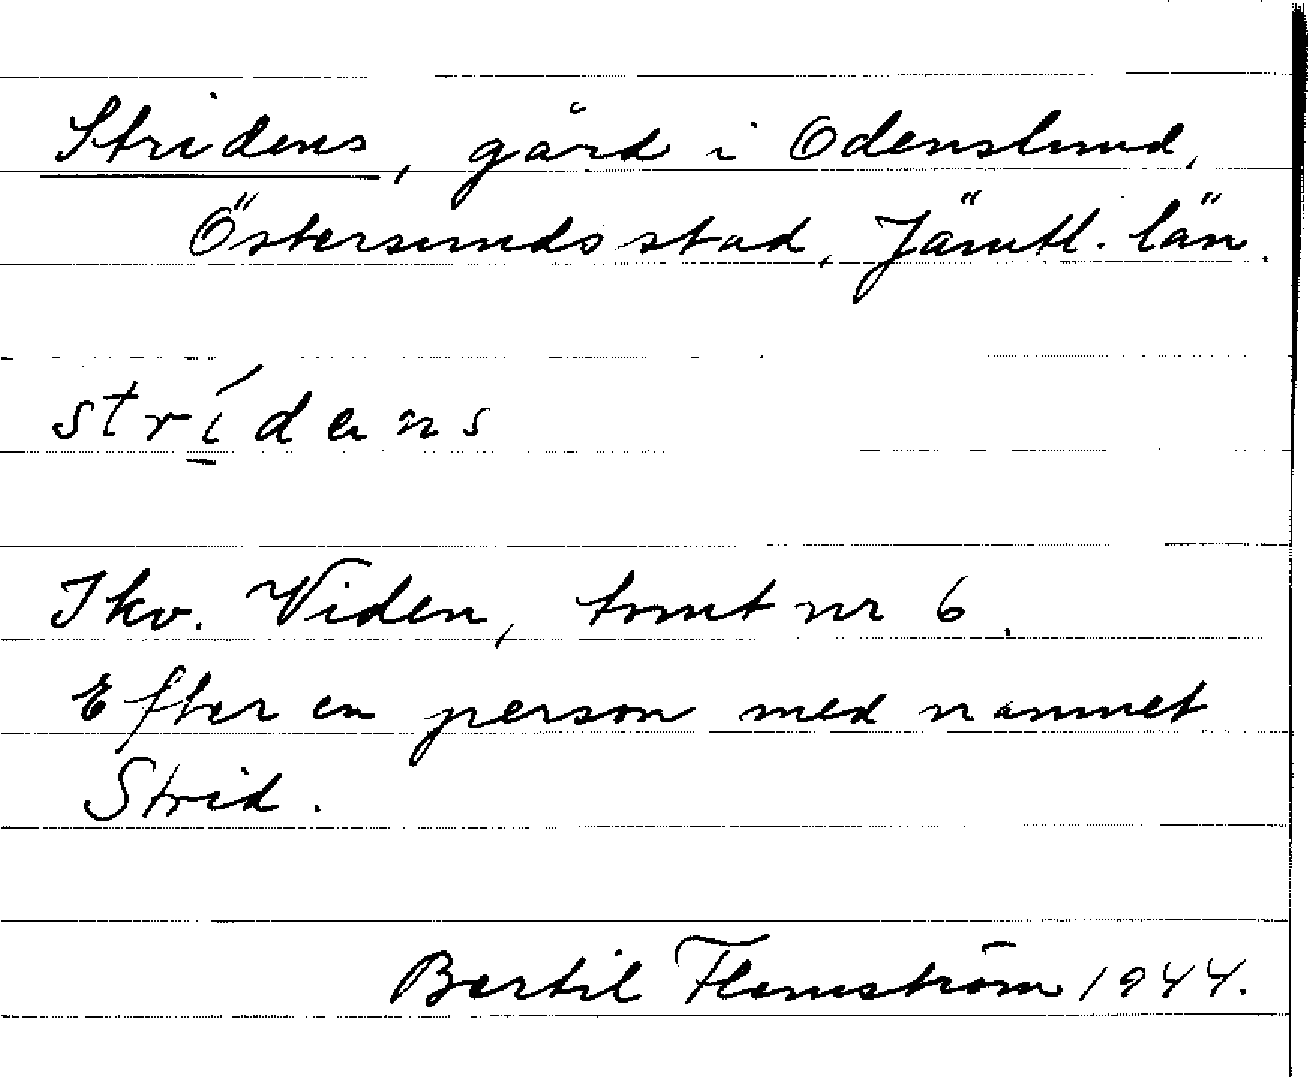 Stridens, gård i Odenslund,
Östersunds stad, Jämtl. län.
strídens
I kv. Viden, tomt nr 6.
Efter en person med namnet
Strid.
Bertil Flemström 1944.